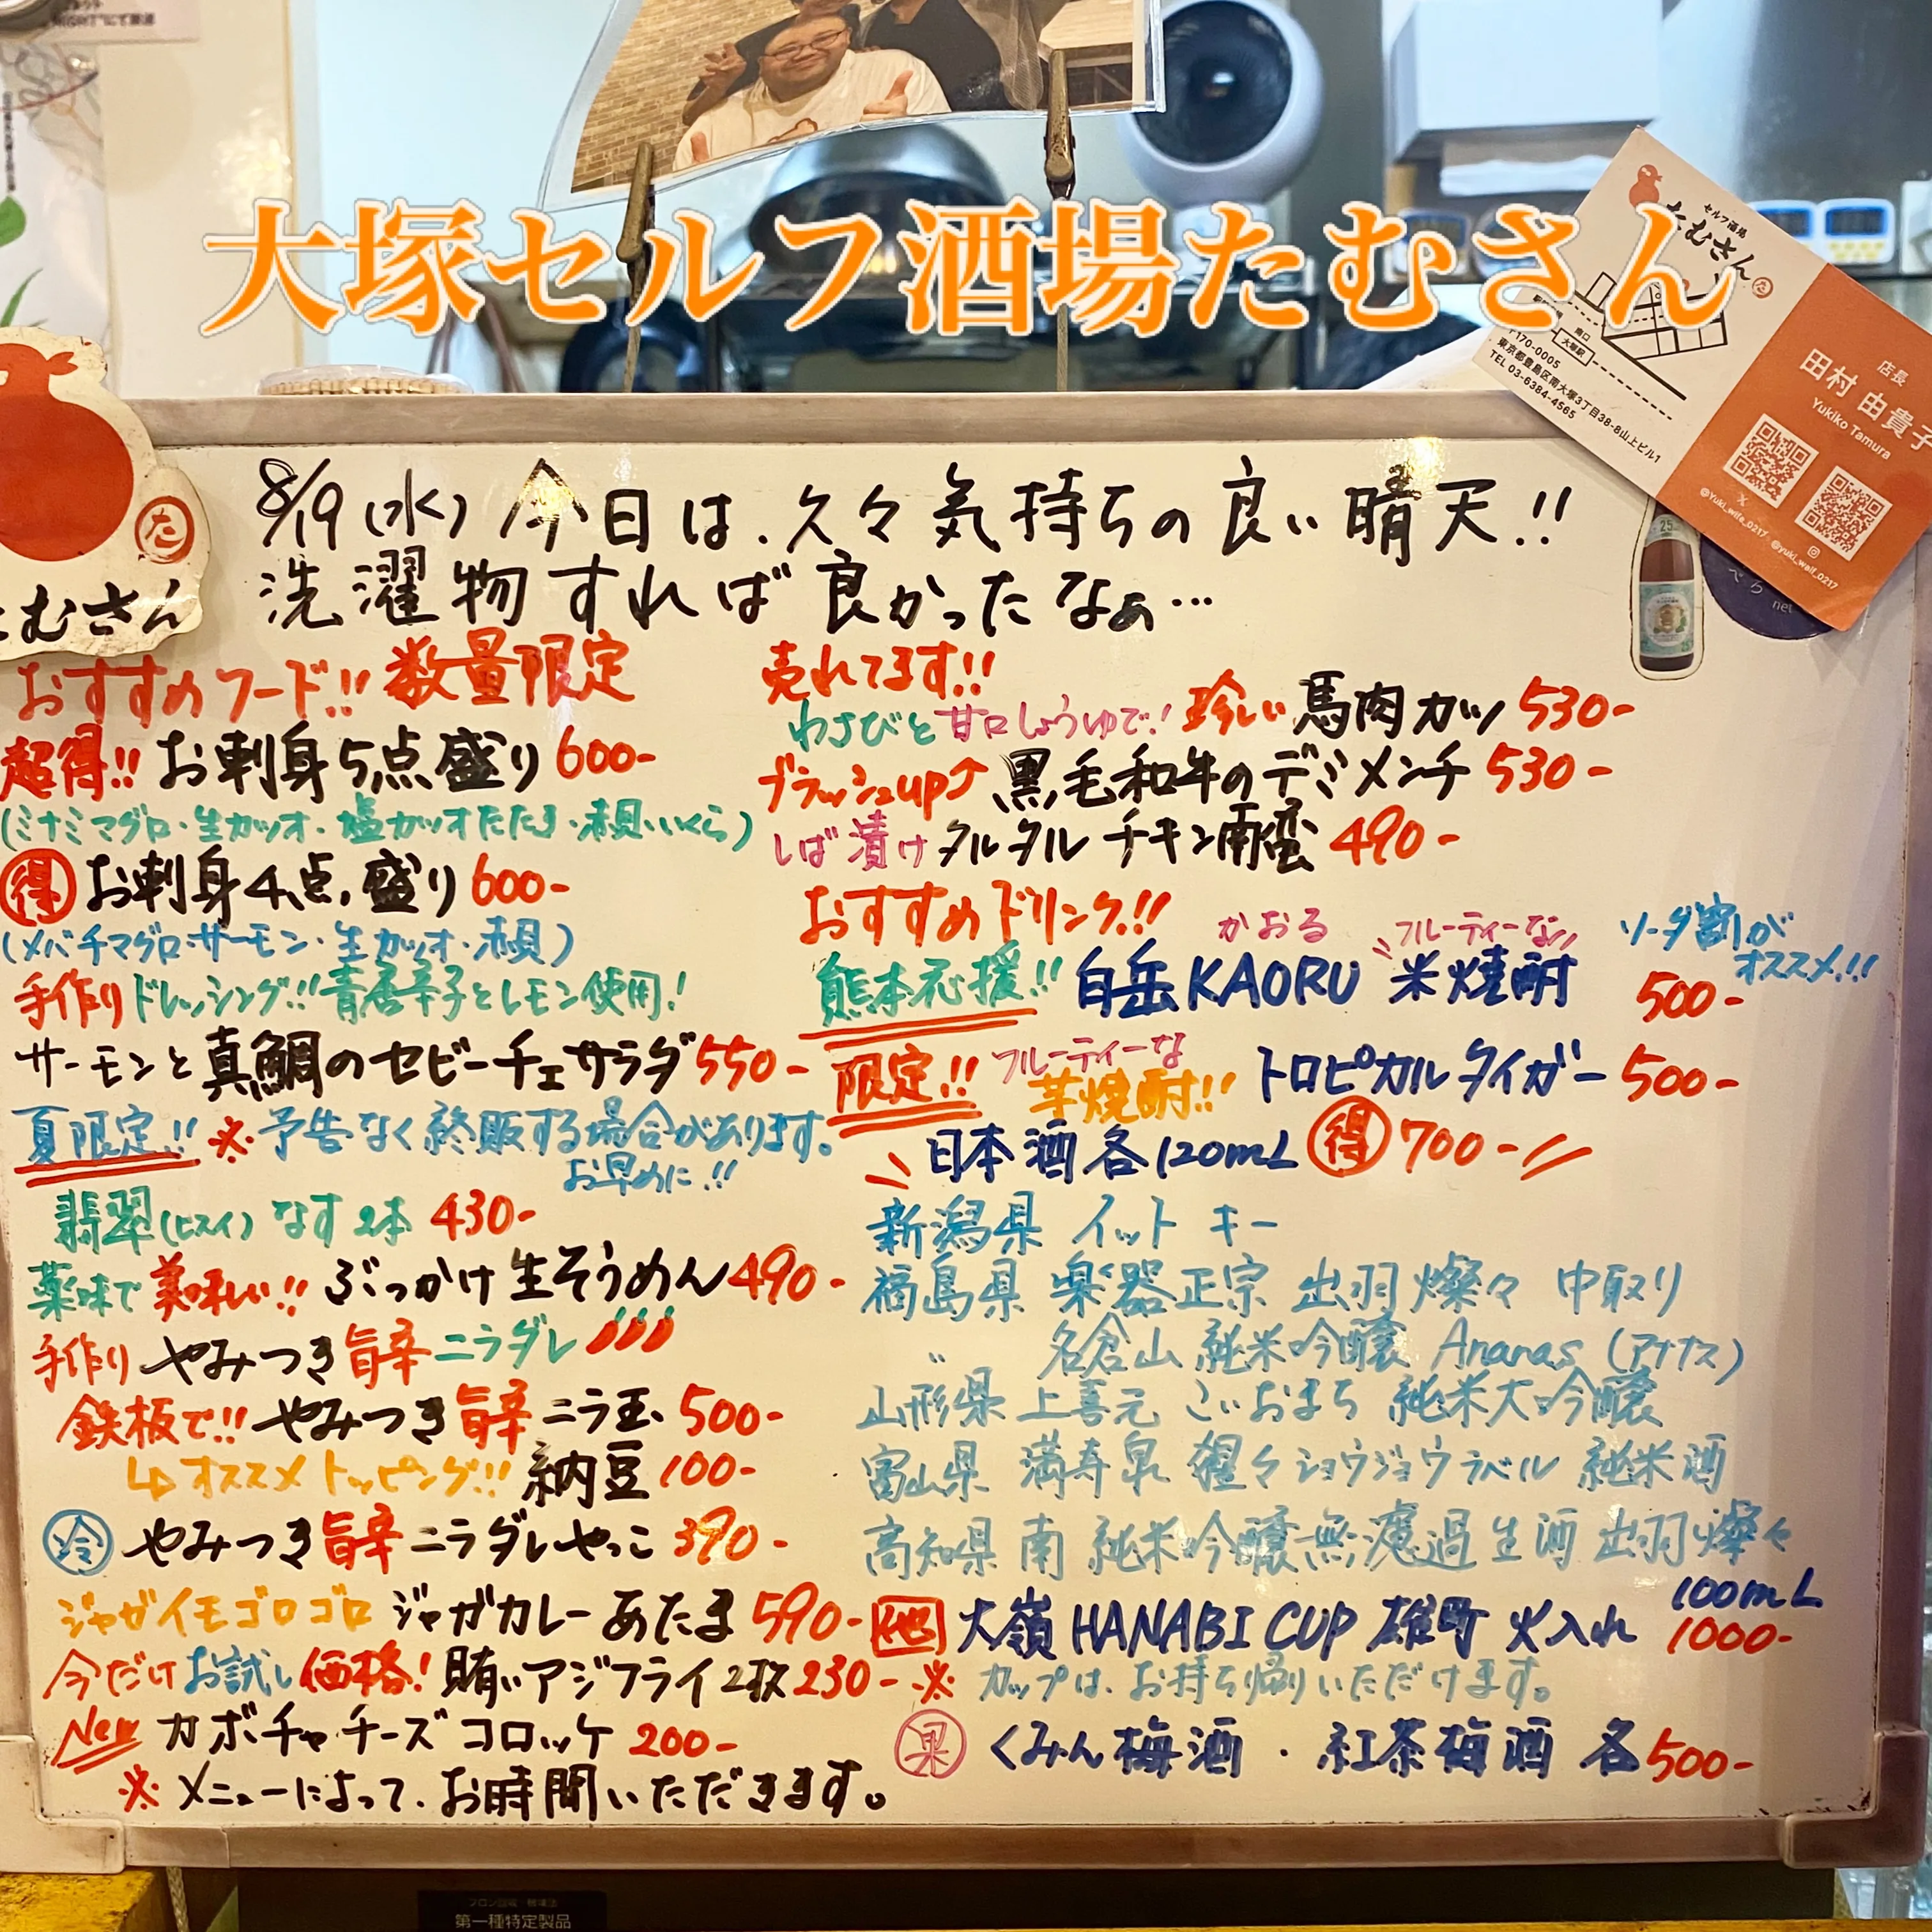 大塚セルフ酒場たむさん
セルフ酒場
たむさん
南口
大塚駅
〒170-0005
東京都豊島区南大塚3丁目38-8山上ビル1
TEL 03-6384-4565
店長
田村 由貴子
Yukiko Tamura
@Yuki_wife_0217
@yuki_waif_0217
た
たむさん
25
8/19(水) 今日は、久々気持ちの良い晴天!!
洗濯物すれば良かったなぁ…
おすすめフード!! 数量限定
超得!! お刺身5点盛り 600-
(ミナミマグロ・生カツオ・塩カツオたたき・赤貝・いくら)
得 お刺身4点盛り 600-
(メバチマグロ・サーモン・生カツオ・赤貝)
手作りドレッシング!! 青唐辛子とレモン使用!
サーモンと真鯛のセビーチェサラダ 550-
夏限定!! ※予告なく終販する場合があります。
お早めに!!
翡翠(ヒスイ)なす2本 430-
薬味で美味しい!! ぶっかけ生そうめん 490-
手作り やみつき旨辛ニラダレ
鉄板で!! やみつき旨辛ニラ玉 500-
↳オススメトッピング!! 納豆 100-
冷 やみつき旨辛ニラダレやっこ 390-
ジャガイモゴロゴロ ジャガカレーあたま 590-
今だけお試し価格! 賄いアジフライ2枚 230-
New カボチャチーズコロッケ 200-
※メニューによって、お時間いただきます。
売れてます!!
わさびと甘口しょうゆで! 珍しい 馬肉カツ 530-
ブラッシュup↑ 黒毛和牛のデミメンチ 530-
しば漬けタルタルチキン南蛮 490-
おすすめドリンク!!
かおる フルーティーな ソーダ割がオススメ!!
熊本応援!! 白岳KAORU 米焼酎 500-
限定!! フルーティーな芋焼酎!! トロピカルタイガー 500-
日本酒各120mL 得 700-
新潟県 イットキー
福島県 楽器正宗 出羽燦々 中取り
〃 名倉山 純米吟醸 Ananas (アナナス)
山形県 上喜元 こいおまち 純米大吟醸
富山県 満寿泉 猩々ショウジョウラベル 純米酒
高知県 南 純米吟醸無濾過生酒 出羽燦々
他 大嶺 HANABI CUP 雄町 火入れ 100mL 1000-
※カップは、お持ち帰りいただけます。
果 くみん梅酒・紅茶梅酒 各500-
第一種特定製品